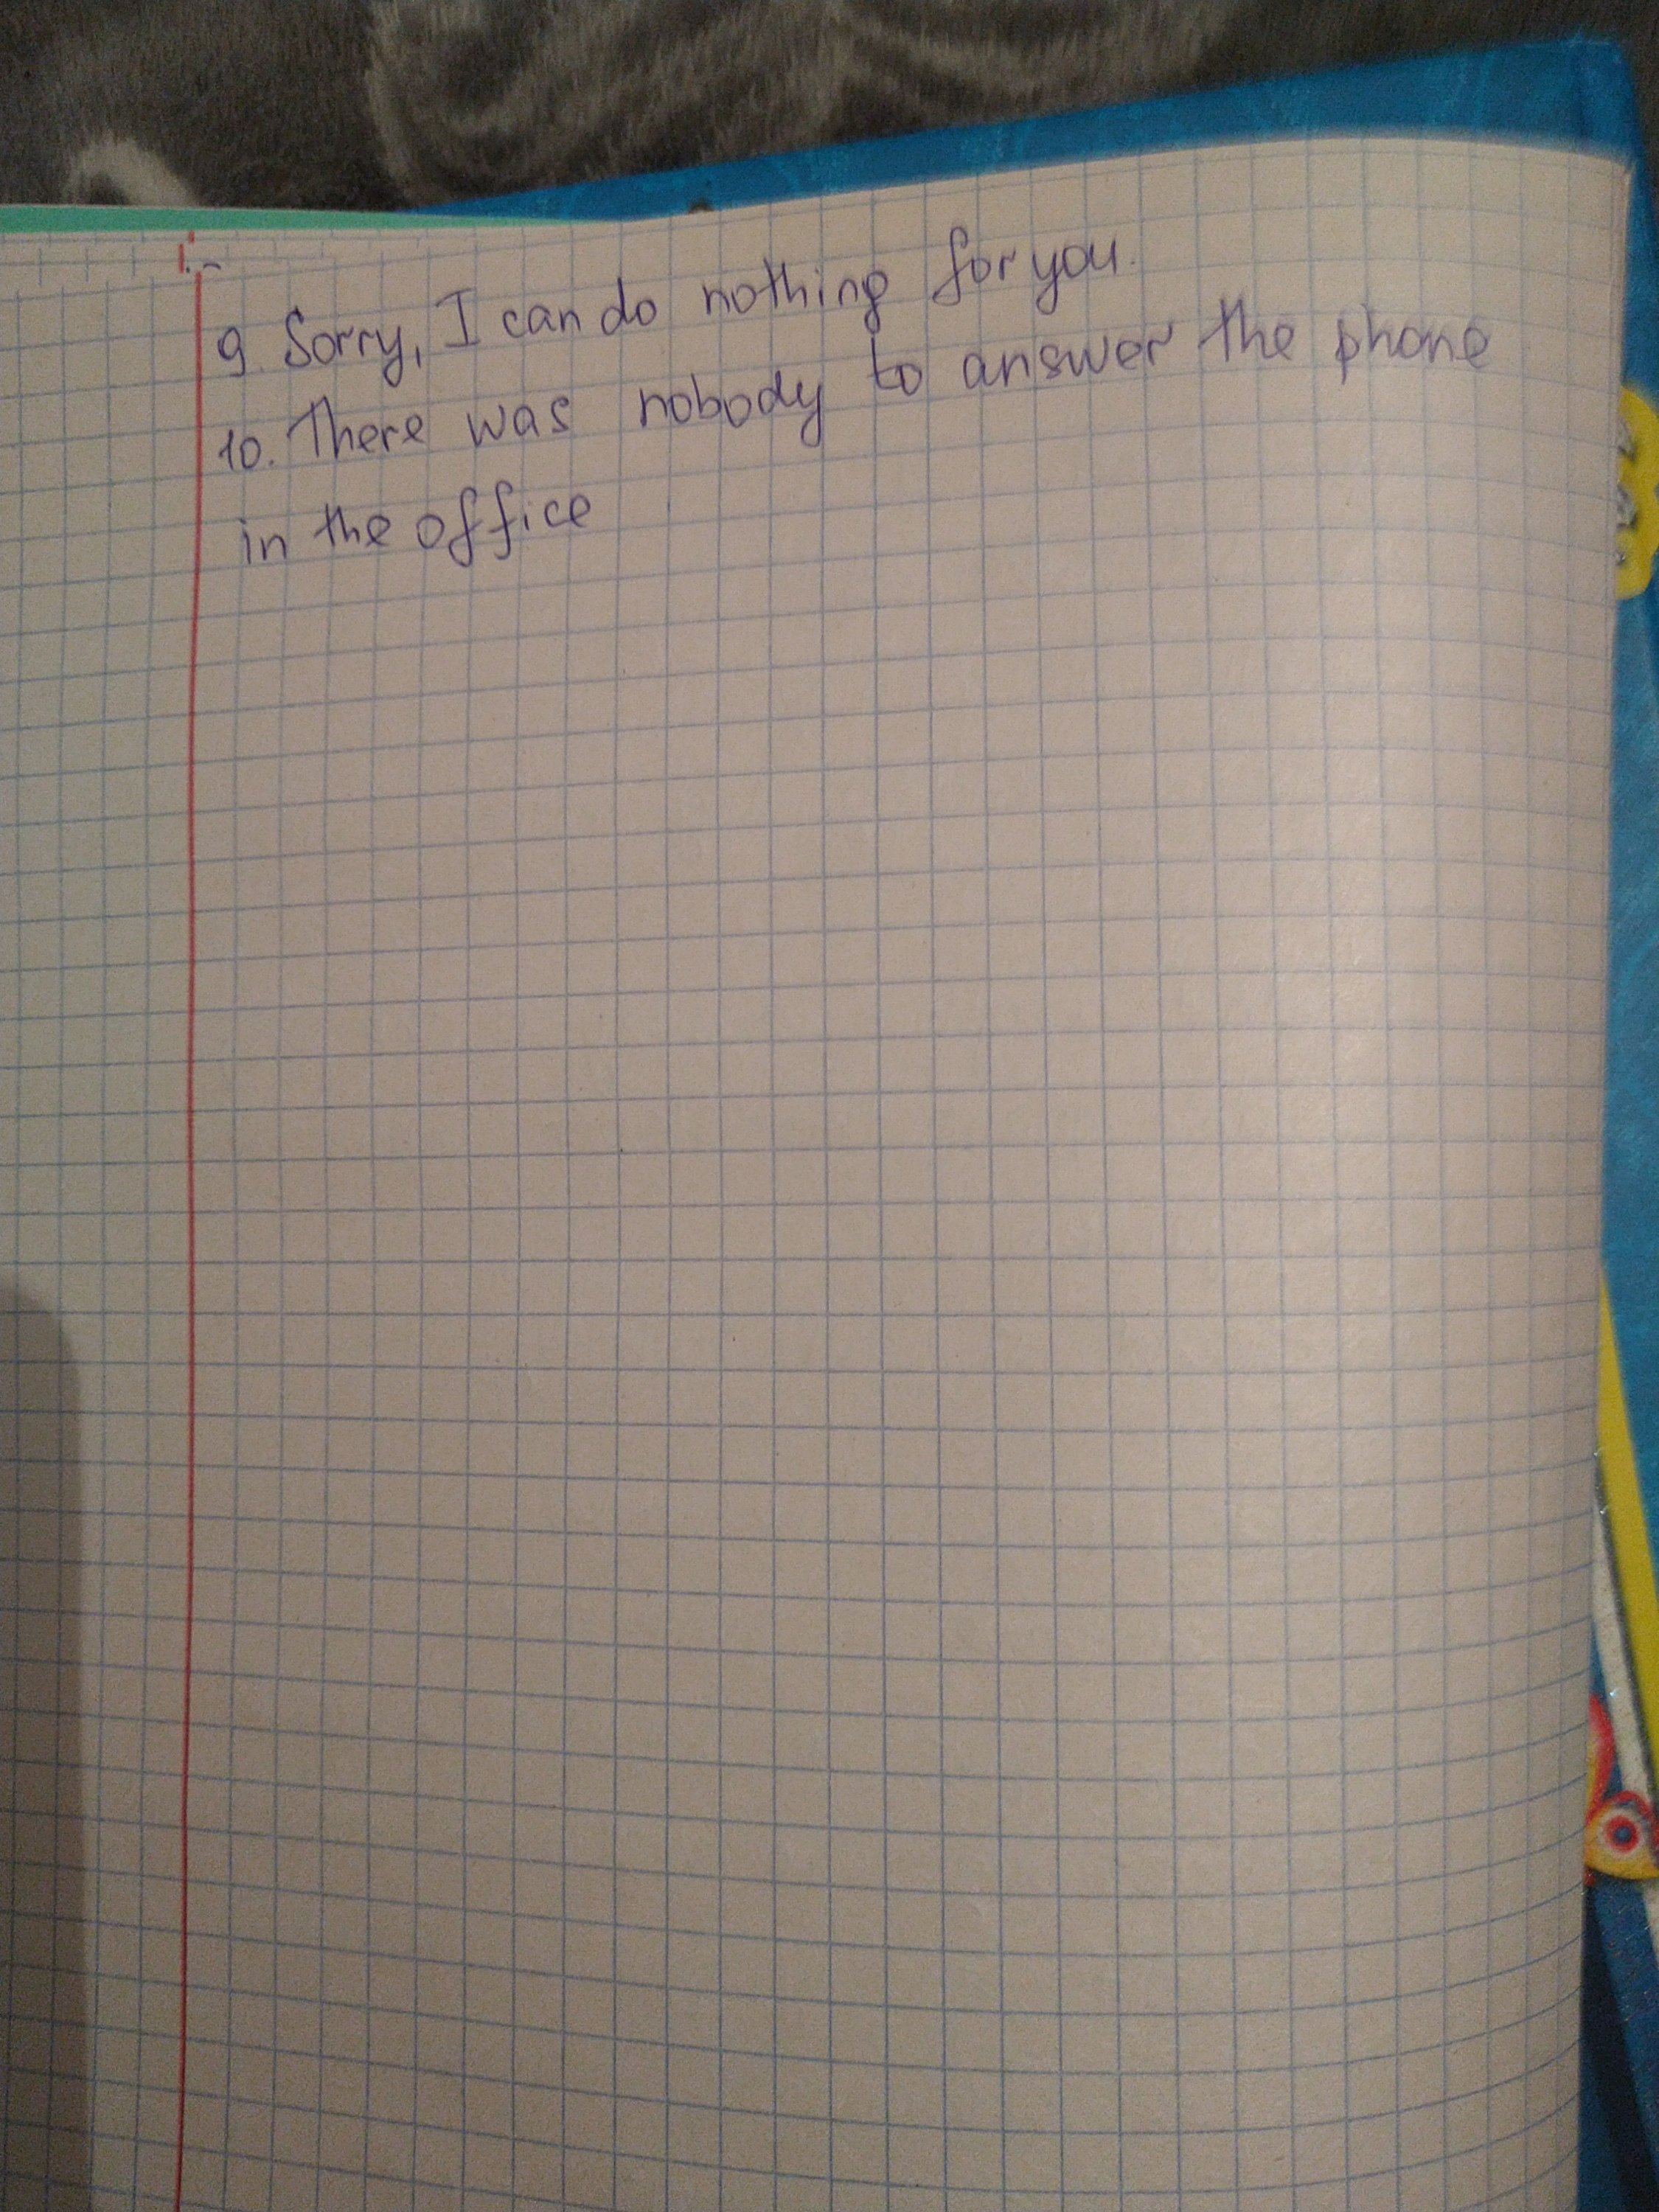 9. Sorry, I can do nothing for you.
10. There was nobody to answer the phone
in the office